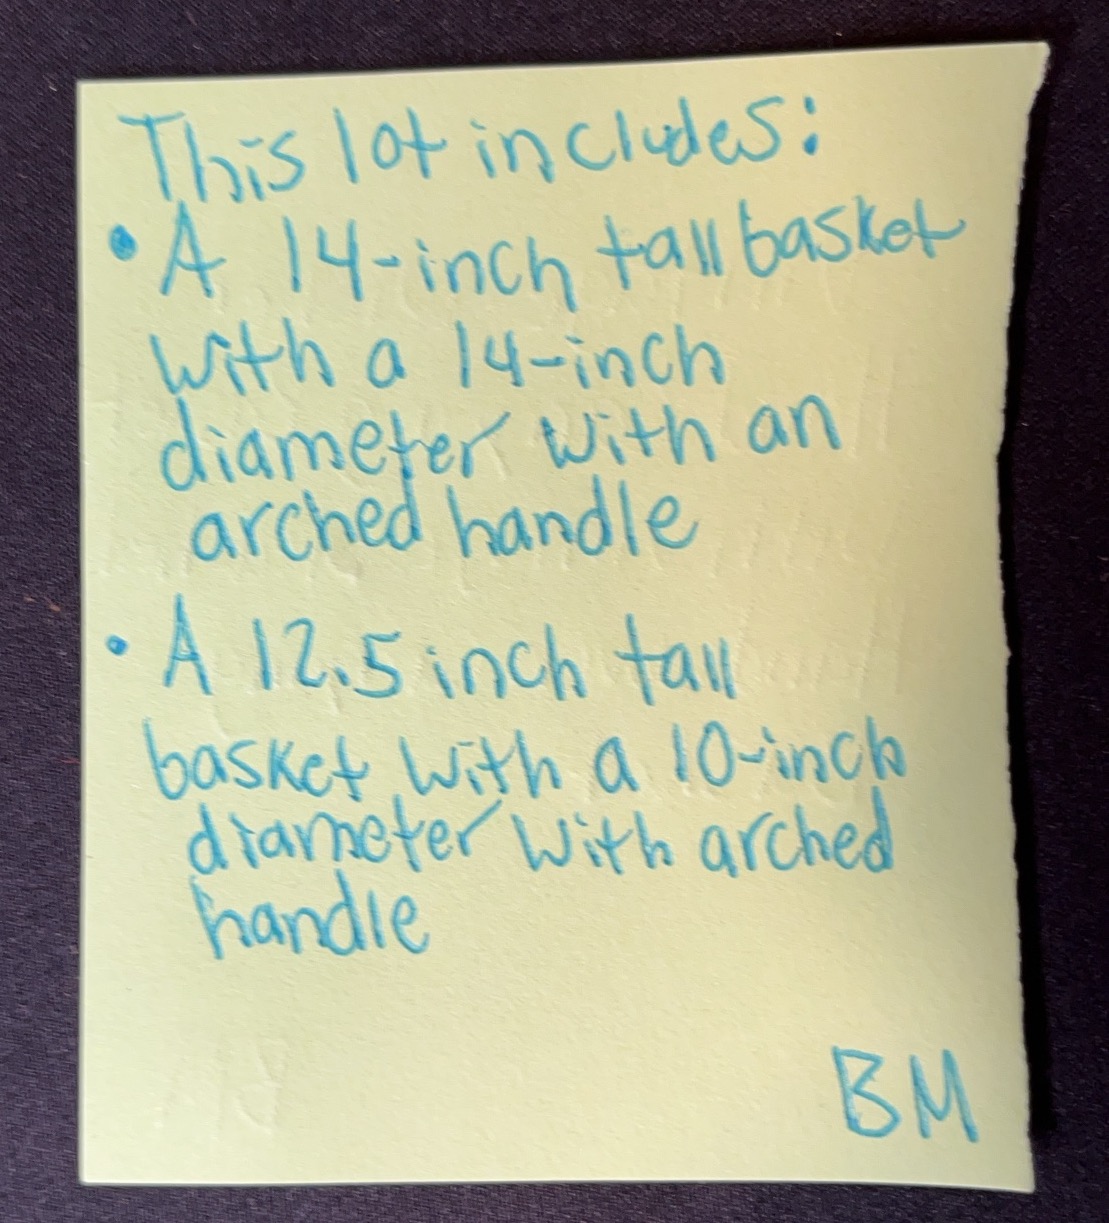 This lot includes:
• A 14-inch tall basket
with a 14-inch
diameter with an
arched handle
• A 12.5 inch tall
basket with a 10-inch
diameter with arched
handle
BM